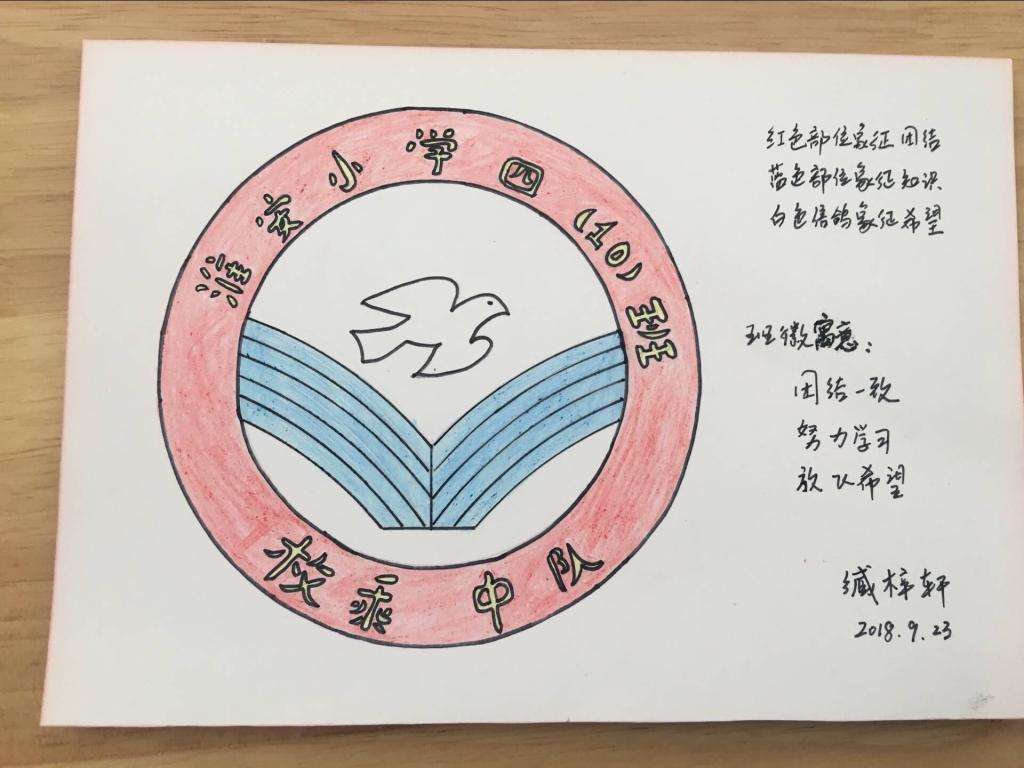 淮安小学四(10)班
中队
红色部位象征团结
蓝色部位象征知识
白色信鸽象征希望
班徽寓意：
团结一致
努力学习
放飞希望
臧梓轩
2018.9.23